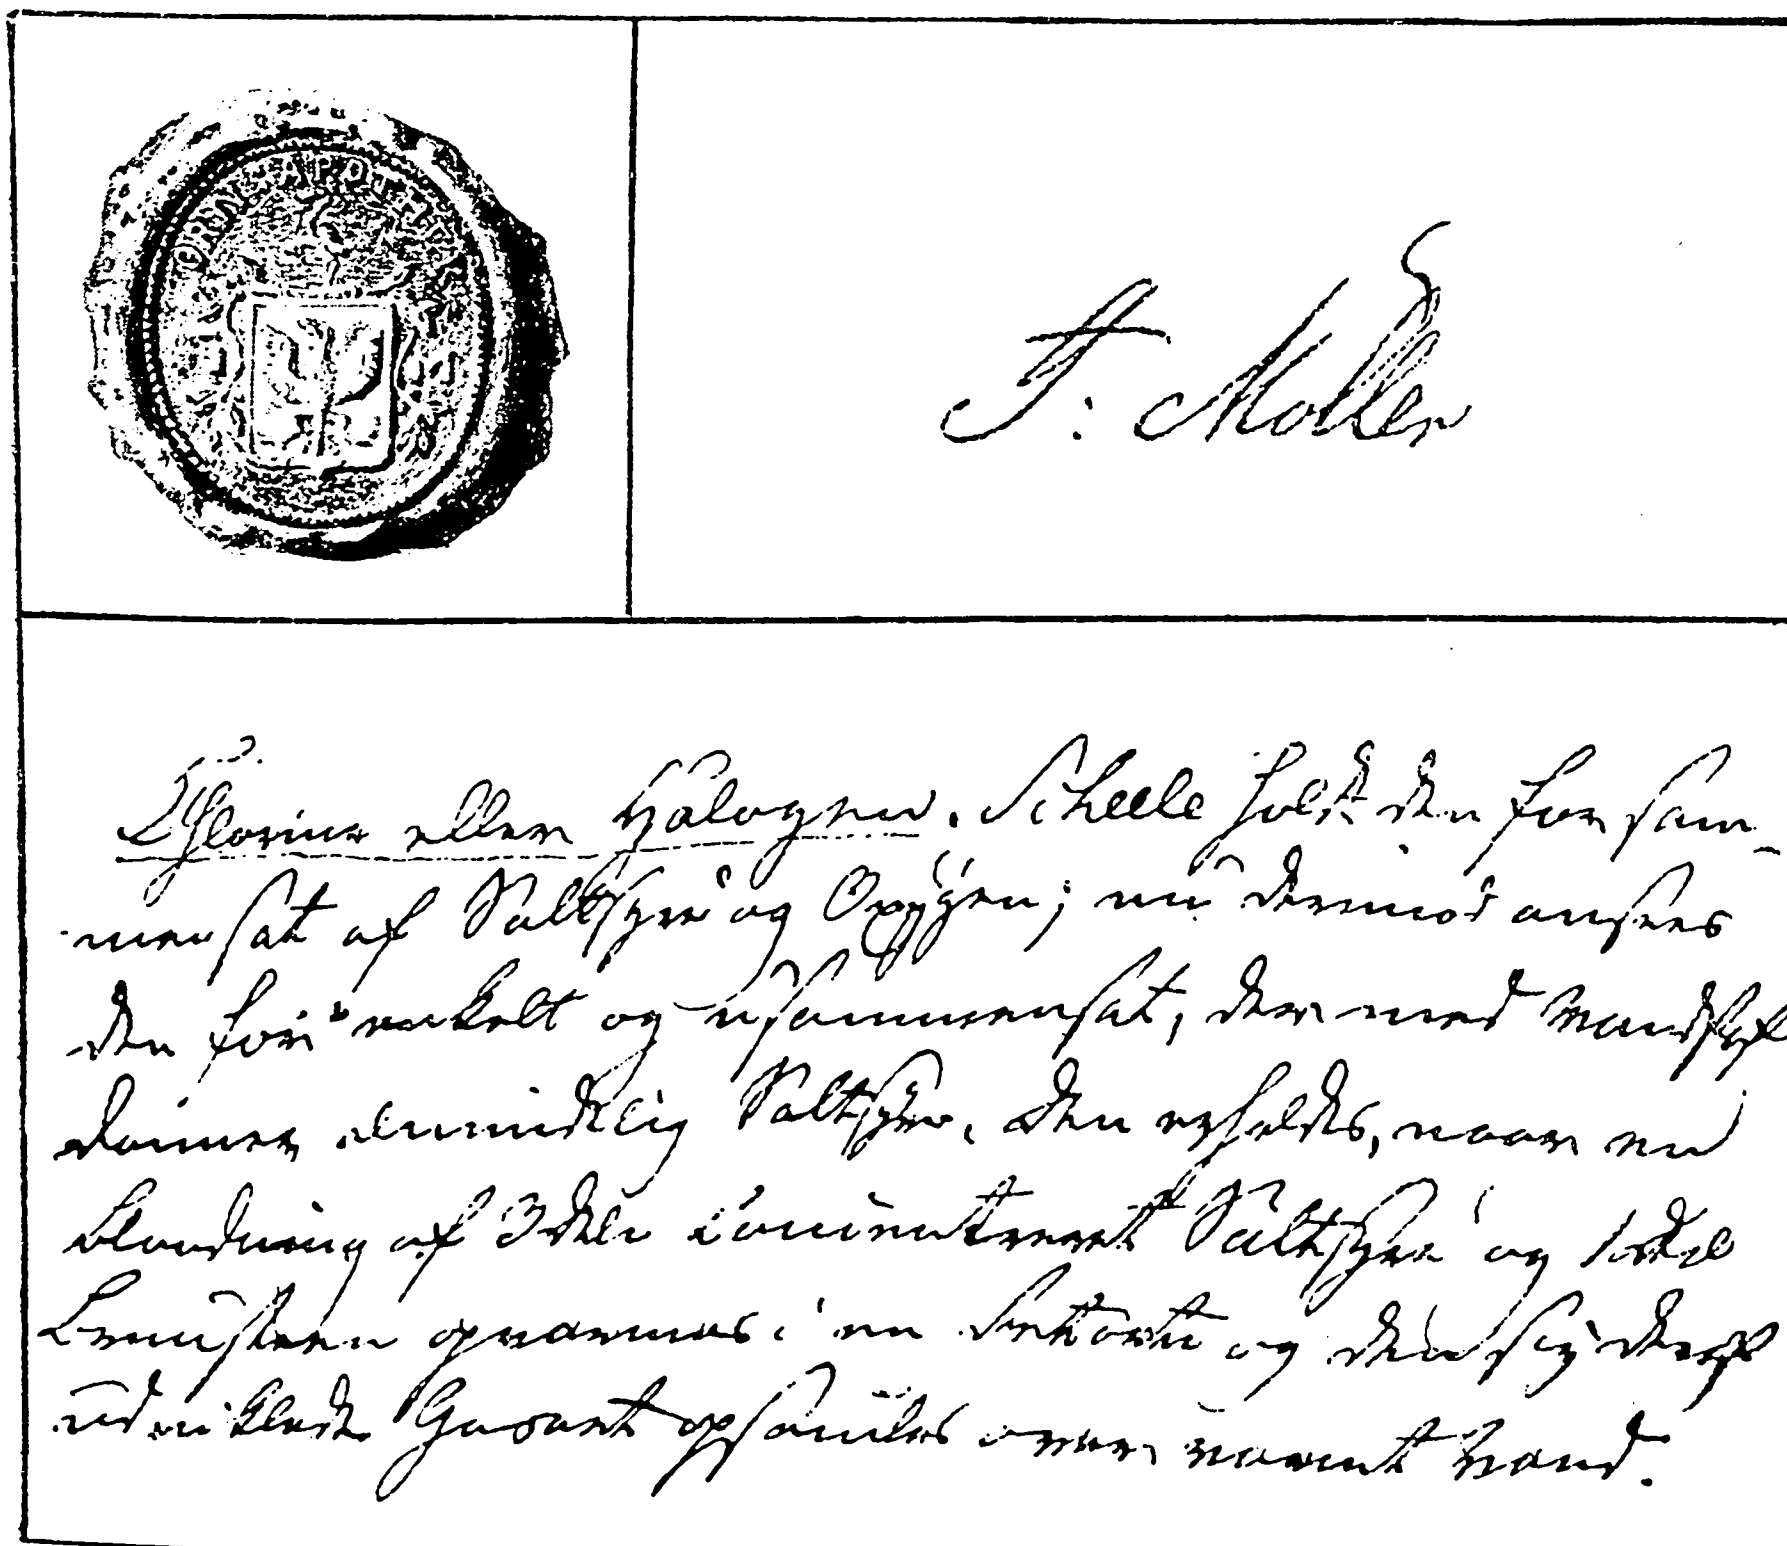 ORN · APOTHE
F: Møller
Chlorine eller Halogen. Scheele holdt den for sam-
mensat af Saltsyre og Oxygen; nu derimod ansees
den for enkelt og usammensat, der med Vandstof
danner almindelig Saltsyre. Den erholdes, naar en
Blanding af 3 Dele concentreret Saltsyre og 1 Deel
Bruunsteen opvarmes i en Retorte og den sig deraf
udviklede Gasart opsamles over varmt Vand.